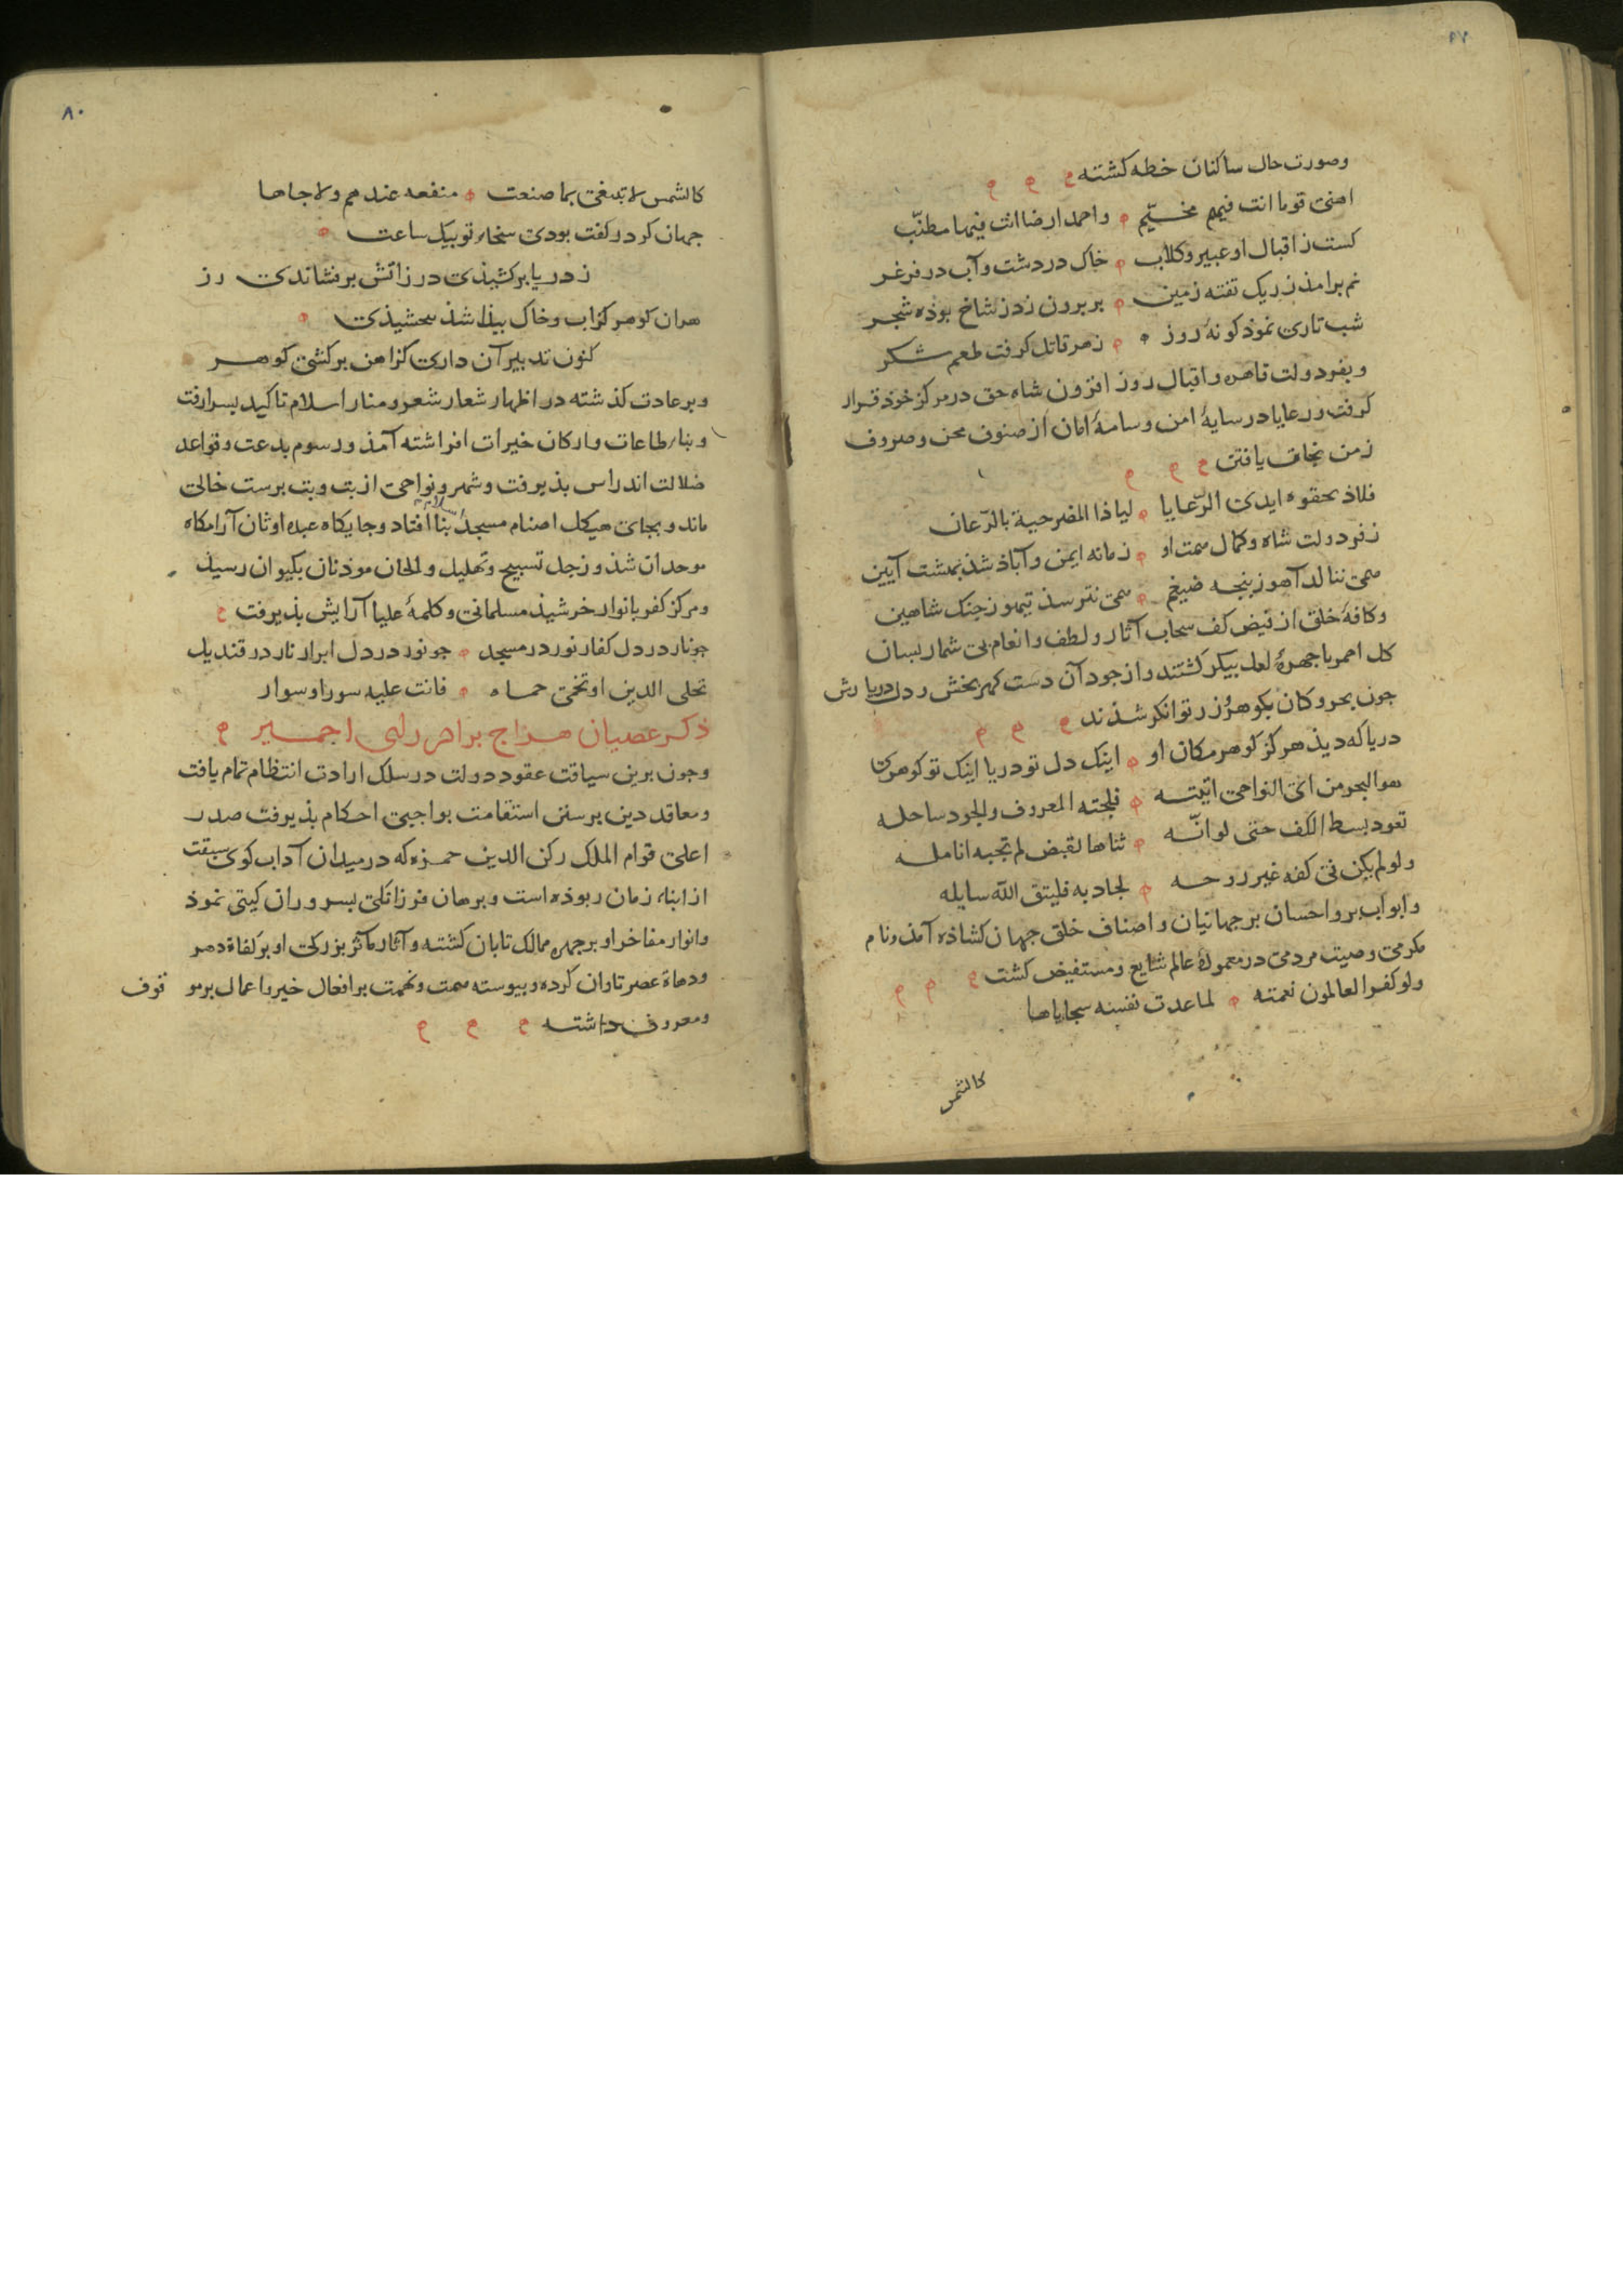 وصورت حال ساکنان خطه کشته
اهنی قوما انت فیهم مخیّم واحمد ارضا انت فیها مطنّب
کست ز اقبال او عبیر و کلاب خاک در دشت و آب در فرغر
نم برامذ ز ریک تفته زمین بر برون زد ز شاخ بوذه شجر
شب تاری نموذ کونهٔ روز زهر قاتل کرفت طعم شکر
و بفر دولت قاهره و اقبال روز افزون شاه حق در مرکز خوذ قرار
کرفت و رعایا در سایهٔ امن و سامهٔ امان از صنوف محن و صروف
زمن نجات یافتن
فلاذ بحقوه ایدی الرّعایا لیاذا المضرحیة بالرّعان
ز فر دولت شاه و کمال همت او زمانه ایمن و آباذ شذ بهشت آیین
همی ننالد آهو ز پنجه ضیغم همی نترسذ تیهو ز چنک شاهین
و کافهٔ خلق از فیض کف سحاب آثار و لطف و انعام بی شمار بسان
کل احمر با چهرهٔ لعل بیکر کشتند و از جود آن دست کهر بخش و دل دریا وش
جون بحر و کان بکوهر و زر توانکر شذند
دریا که دیذ هرکز کوهر مکان او اینک دل تو دریا اینک تو کوهرکن
هو البحر من ای النواحی اتیته فلجته المعروف والجود ساحله
تعود بسط الکف حتی لو انّه ثناها لقبض لم تجبه انامله
ولو لم یکن فی کفه غیر روحه لجاد به فلیتق اللّه سایله
و ابواب بر و احسان بر جهانیان و اصناف خلق جهان کشاذه آمذ و نام
مکرمی و صیت مردمی در معمورهٔ عالم شایع و مستفیض کشت
ولو کفر العالمون نعمته لما عدت نفسه سجایاها
کالشمس
۸۰
کالشمس لا تبتغی بما صنعت منفعه عندهم ولا جاها
جهان کر در کفت بودی سخاء تو بیک ساعت
ز دریا بر کشیذی در ز آتش بر فشاندی زر
هران کوهر کز اب و خاک بیذا شذ ببخشیذی
کنون تدبیر آن داری کز اهن بر کشی کوهر
و بر عادت کذشته در اظهار شعار شعر و منار اسلام تاکید بسرا رفت
و بناء طاعات و ارکان خیرات افراشته آمذ و رسوم بدعت و قواعد
ضلالت اندراس بذیرفت و شهر و نواحی از بت و بت برست خالی
ماند و بجای هیکل اصنام مسجد اسلام بنا افتاد و جایکاه عبده اوثان آرامکاه
موحدان شذ و زجل تسبیح و تهلیل و الحان موذنان بکیوان رسیذ
و مرکز کفر بانوار خرشیذ مسلمانی و کلمهٔ علیا آرایش بذیرفت
جو نار در دل کفار نور در مسجد جو نور در دل ابرار نار در قندیل
تحلی الدین او تحمی حماه فانت علیه سور او سوار
ذکر عصیان هراج برادر رای اجمیر
و جون برین سیاقت عقود دولت در سلک ارادت انتظام تمام یافت
و معاقد دین بر سنن استقامت بواجبی احکام بذیرفت صدر
اعلی قوام الملک رکن الدین حمزه که در میدان آداب کوی سبقت
از ابناء زمان ربوذه است و برهان فرزانکی بسروران کیتی نموذ
و انوار مفاخر او بر چهره ممالک تابان کشته و آثار مآثر بزرکی او بر کفاة دهر
و دهاة عصر تاوان کرده و بیوسته همت و نهمت بر افعال خیر و اعمال بر موقوف
و معروف داشته